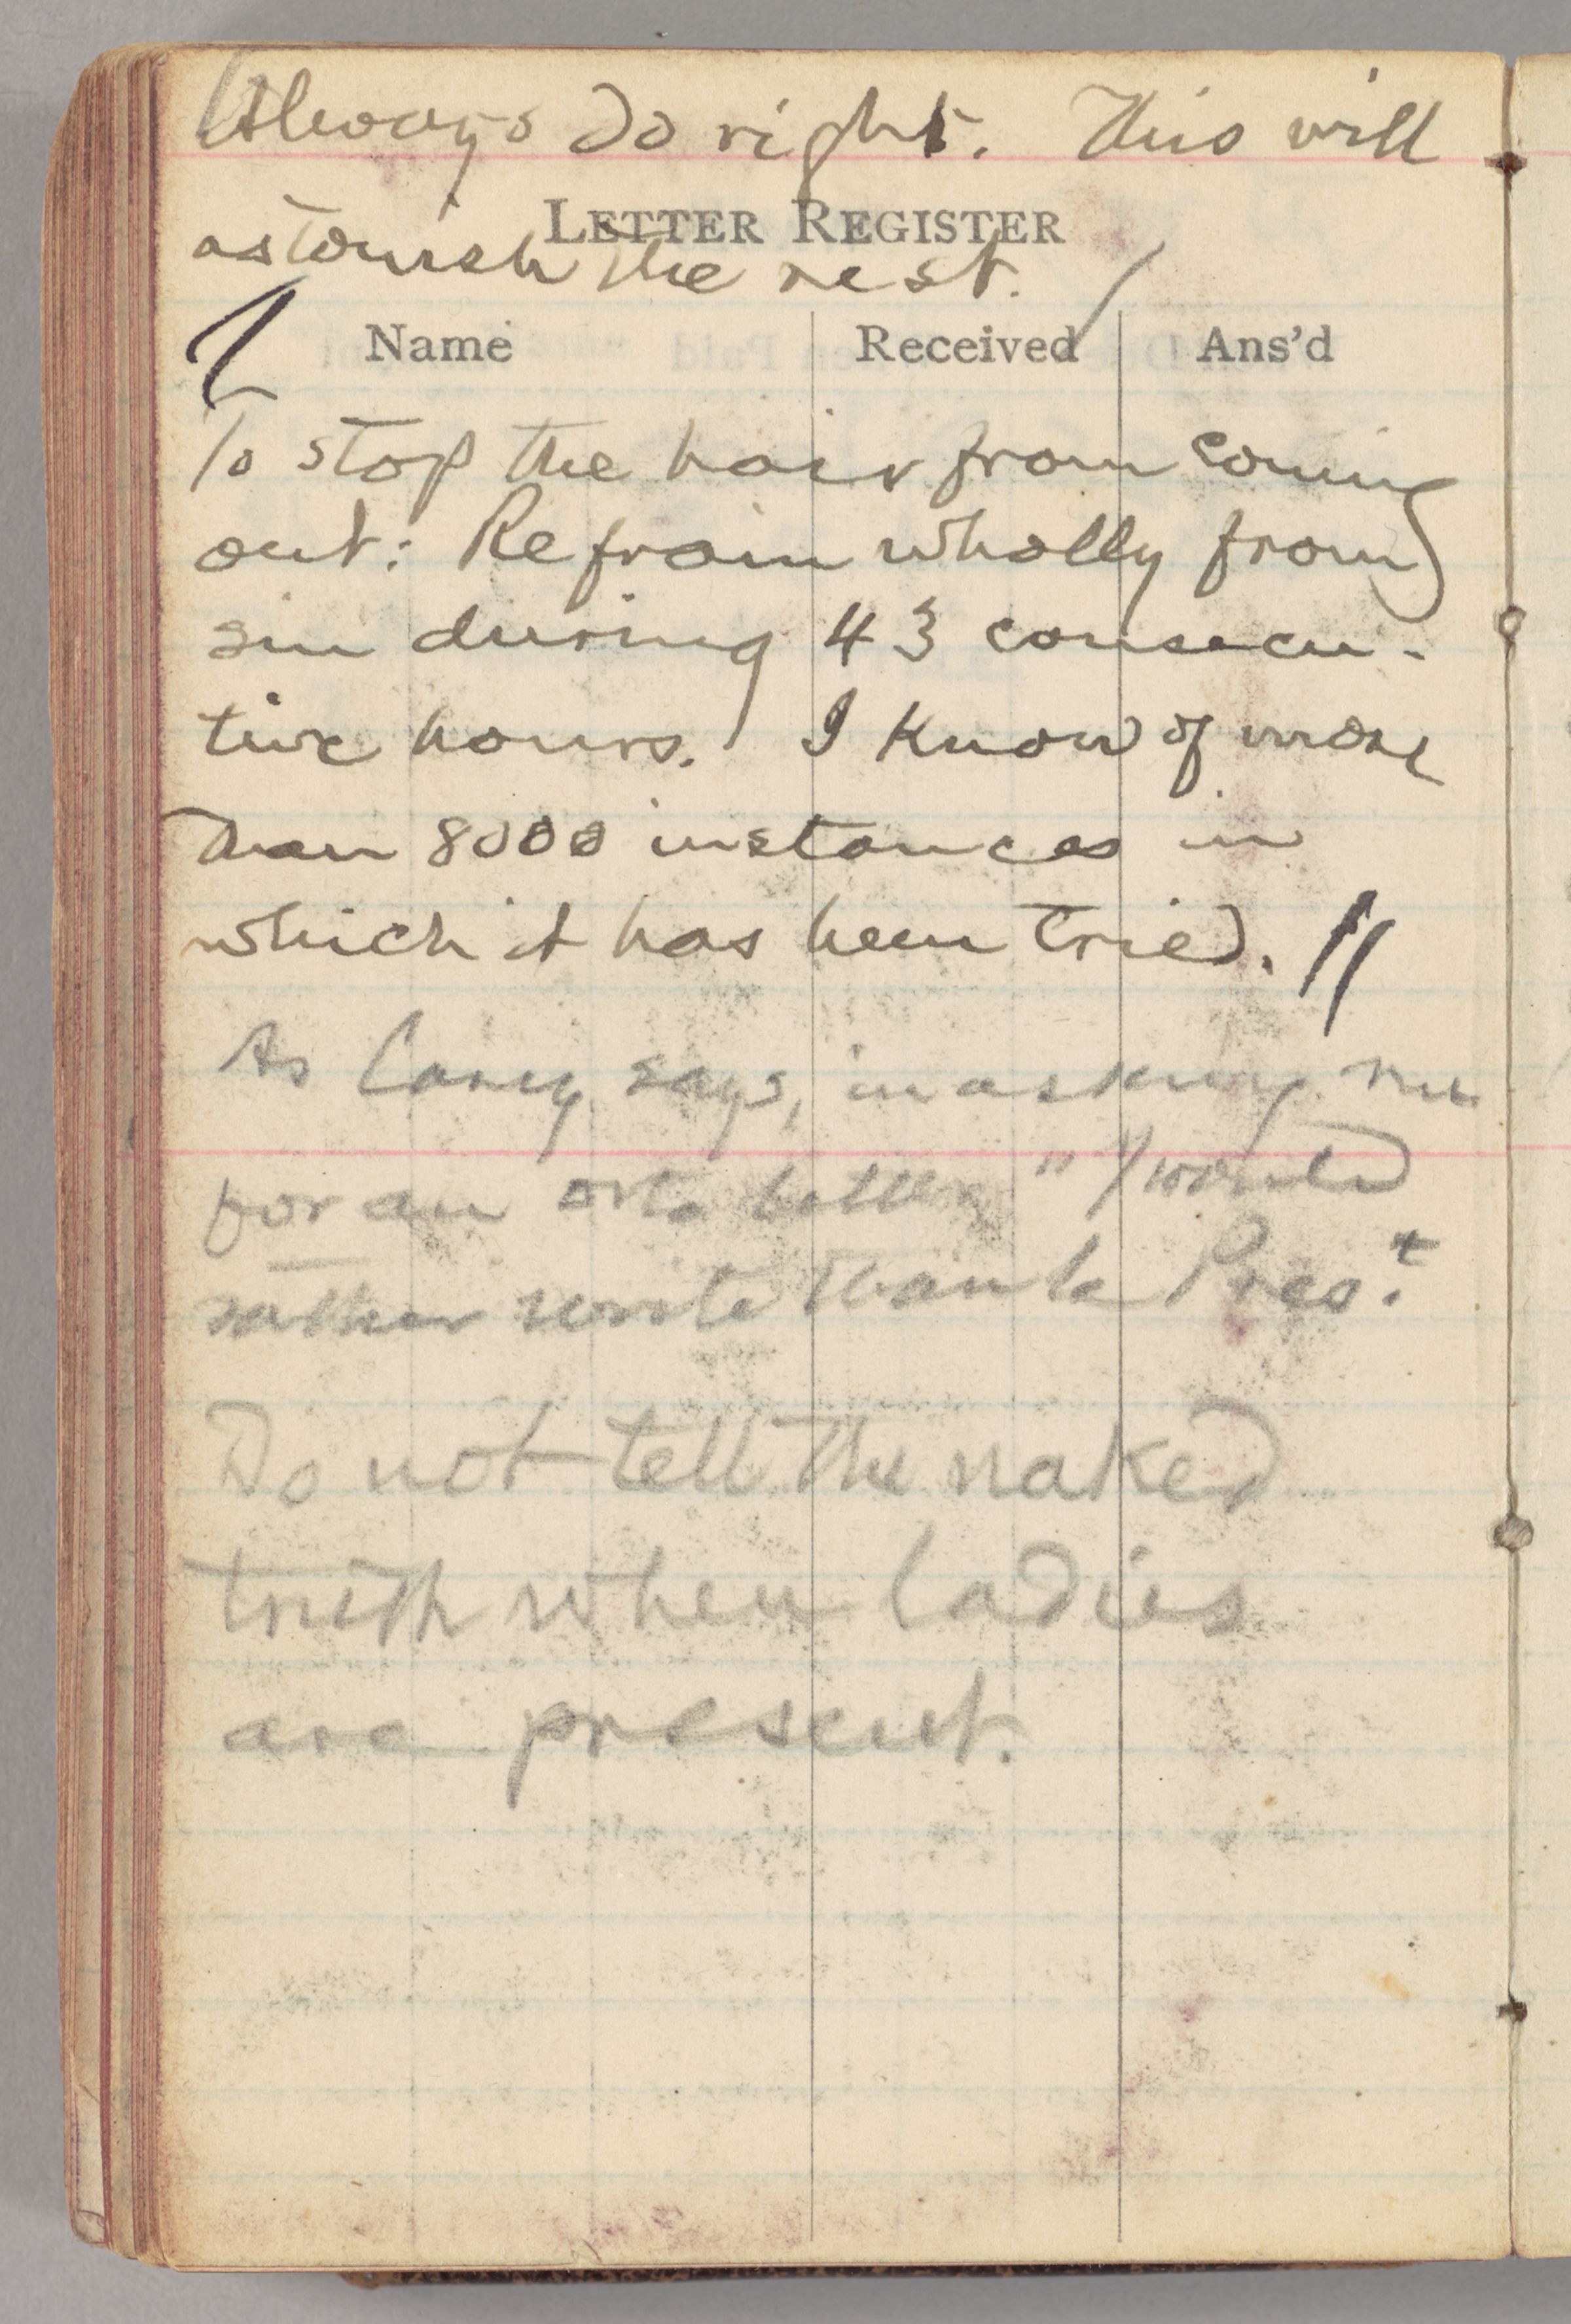 Always do right. This will
LETTER REGISTER
astonish the rest.
Name Received Ans'd
To stop the hair from coming
out: Refrain wholly from
sin during 43 consecu-
tive hours. I know of more
than 8000 instances in
which it has been tried. //
As Carey says, in asking me
for an letter, "I would
rather write than be Pres.t
Do not tell the naked
truth when ladies
are present.